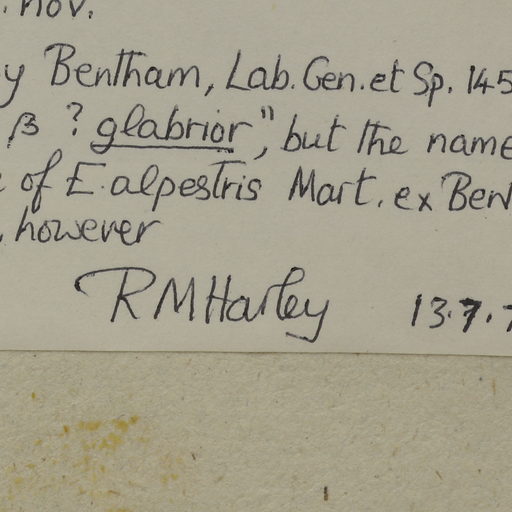 . nov.
y Bentham, Lab. Gen. et Sp. 145
β ? glabrior", but the name
of E. alpestris Mart. ex Ben
, however
RMHarley 13.7.7